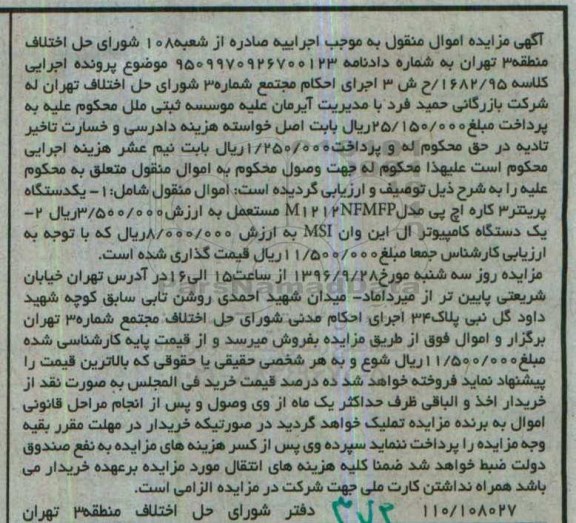 آگهی مزایده اموال منقول به موجب اجراییه صادره از شعبه۱۰۸ شورای حل اختلاف
منطقه۳ تهران به شماره دادنامه ۹۵۰۹۹۷۰۹۲۶۷۰۰۱۲۳ موضوع پرونده اجرایی
کلاسه ۱۶۸۲/۹۵/ح ش ۳ اجرای احکام مجتمع شماره۳ شورای حل اختلاف تهران له
شرکت بازرگانی حمید فرد با مدیریت آیرمان علیه موسسه ثبتی ملل محکوم علیه به
پرداخت مبلغ۲۵/۱۵۰/۰۰۰ریال بابت اصل خواسته هزینه دادرسی و خسارت تاخیر
تادیه در حق محکوم له و پرداخت۱/۲۵۰/۰۰۰ریال بابت نیم عشر هزینه اجرایی
محکوم است علیهذا محکوم له جهت وصول محکوم به اموال منقول متعلق به محکوم
علیه را به شرح ذیل توصیف و ارزیابی گردیده است: اموال منقول شامل:۱- یکدستگاه
پرینتر۳ کاره اچ پی مدلM۱۲۱۲NFMFP مستعمل به ارزش۳/۵۰۰/۰۰۰ریال ۲-
یک دستگاه کامپیوتر ال این وان MSI به ارزش ۸/۰۰۰/۰۰۰ریال که با توجه به
ارزیابی کارشناس جمعا مبلغ۱۱/۵۰۰/۰۰۰ریال قیمت گذاری شده است.
مزایده روز سه شنبه مورخ۱۳۹۶/۹/۲۸ از ساعت۱۵ الی۱۶در آدرس تهران خیابان
شریعتی پایین تر از میرداماد- میدان شهید احمدی روشن تابی سابق کوچه شهید
داود گل نبی پلاک۳۴ اجرای احکام مدنی شورای حل اختلاف مجتمع شماره۳ تهران
برگزار و اموال فوق از طریق مزایده بفروش میرسد و از قیمت پایه کارشناسی شده
مبلغ۱۱/۵۰۰/۰۰۰ریال شوع و به هر شخصی حقیقی یا حقوقی که بالاترین قیمت را
پیشنهاد نماید فروخته خواهد شد ده درصد قیمت خرید فی المجلس به صورت نقد از
خریدار اخذ و الباقی ظرف حداکثر یک ماه از وی وصول و پس از انجام مراحل قانونی
اموال به برنده مزایده تملیک خواهد گردید در صورتیکه خریدار در مهلت مقرر بقیه
وجه مزایده را پرداخت ننماید سپرده وی پس از کسر هزینه های مزایده به نفع صندوق
دولت ضبط خواهد شد ضمنا کلیه هزینه های انتقال مورد مزایده برعهده خریدار می
باشد همراه نداشتن کارت ملی جهت شرکت در مزایده الزامی است.
۱۱۰/۱۰۸۰۲۷ دفتر شورای حل اختلاف منطقه۳ تهران